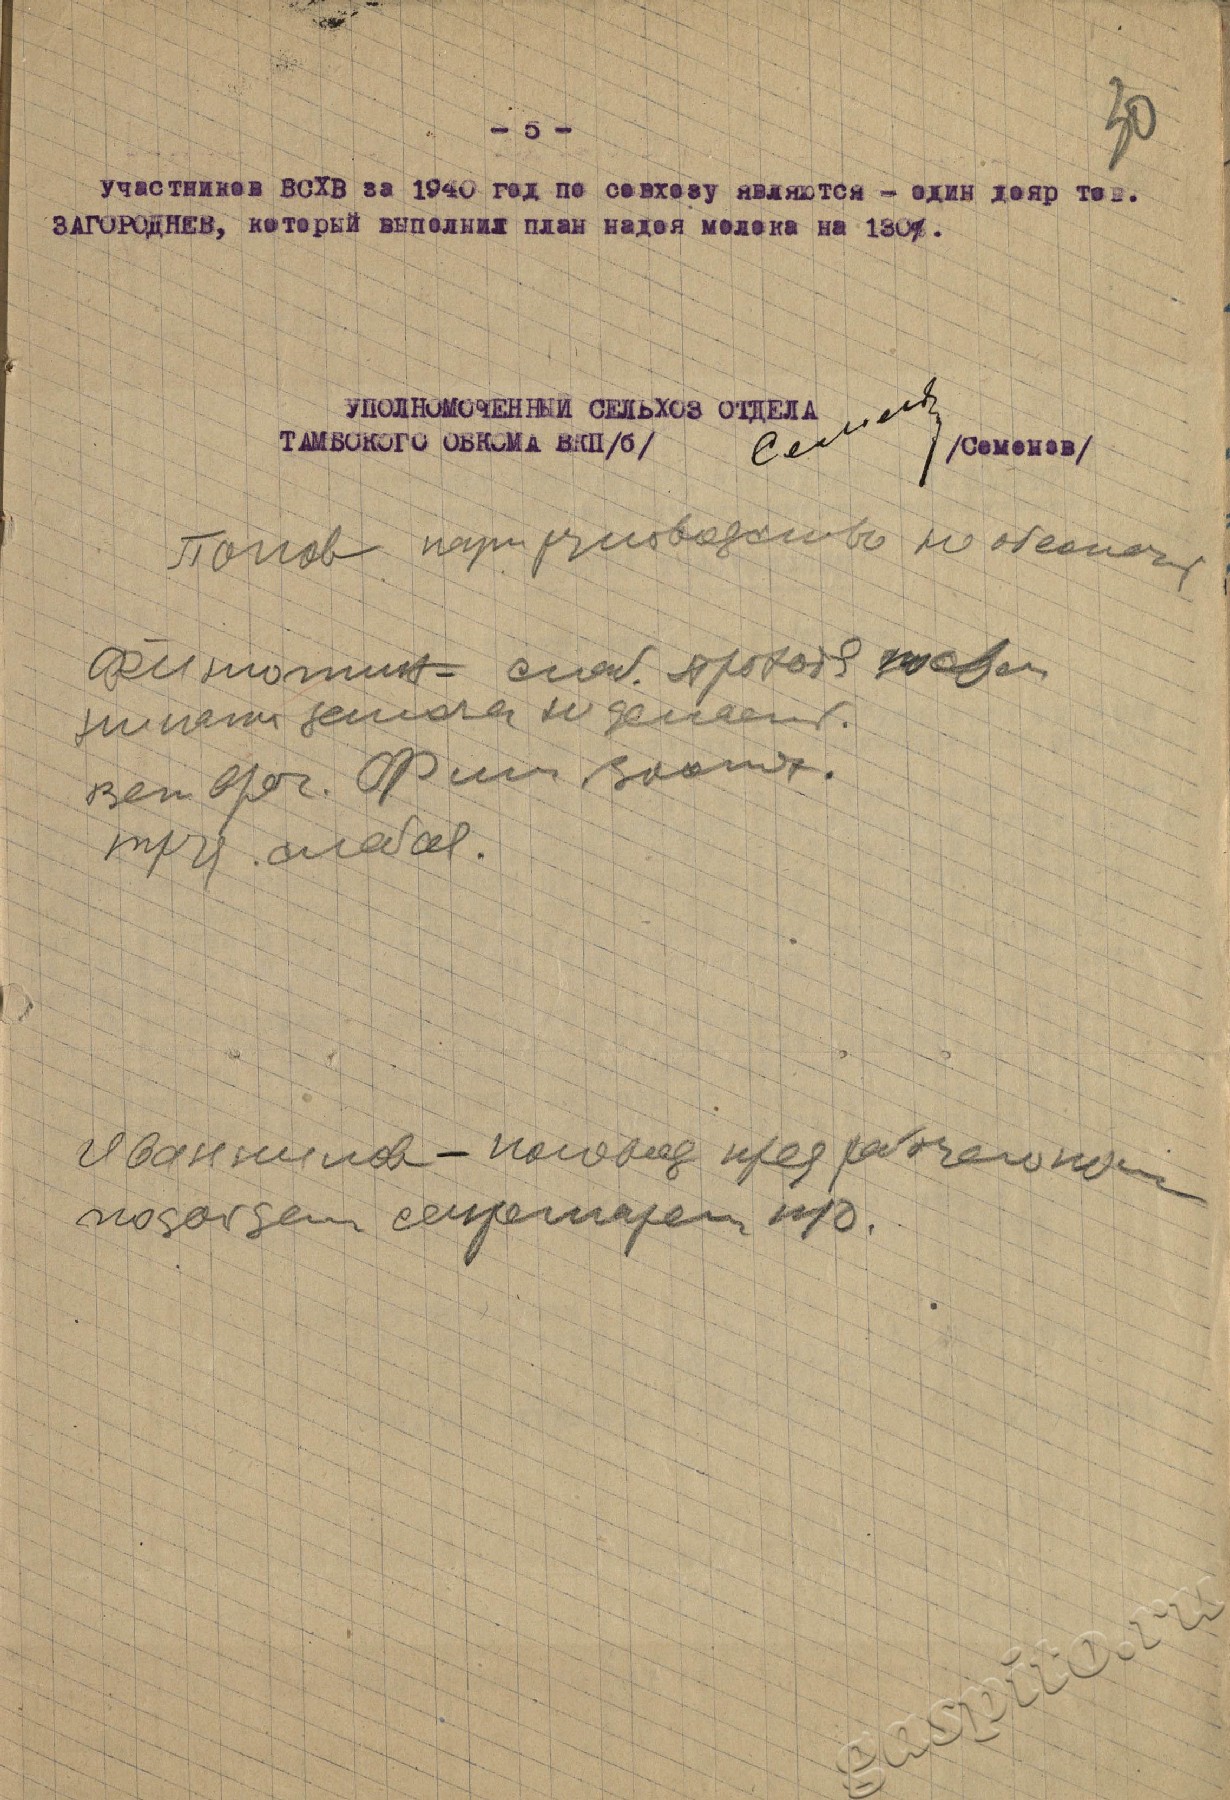 - 5 -
30
участников ВСХВ за 1940 год по совхозу являются - один дояр тов.
ЗАГОРОДНЕВ, который выполнил план надоя молока на 130%.
УПОЛНОМОЧЕННЫЙ СЕЛЬХОЗ ОТДЕЛА
ТАМБСКОГО ОБКОМА ВКП/б/ /Семенов/
Попов парт руководство не обеспеч
слаб.
не делает.
вет врач. Фил
труд. слабая.
Иванников - полевод пред рабочего
подходящ секретарем п/о.
gaspito.ru